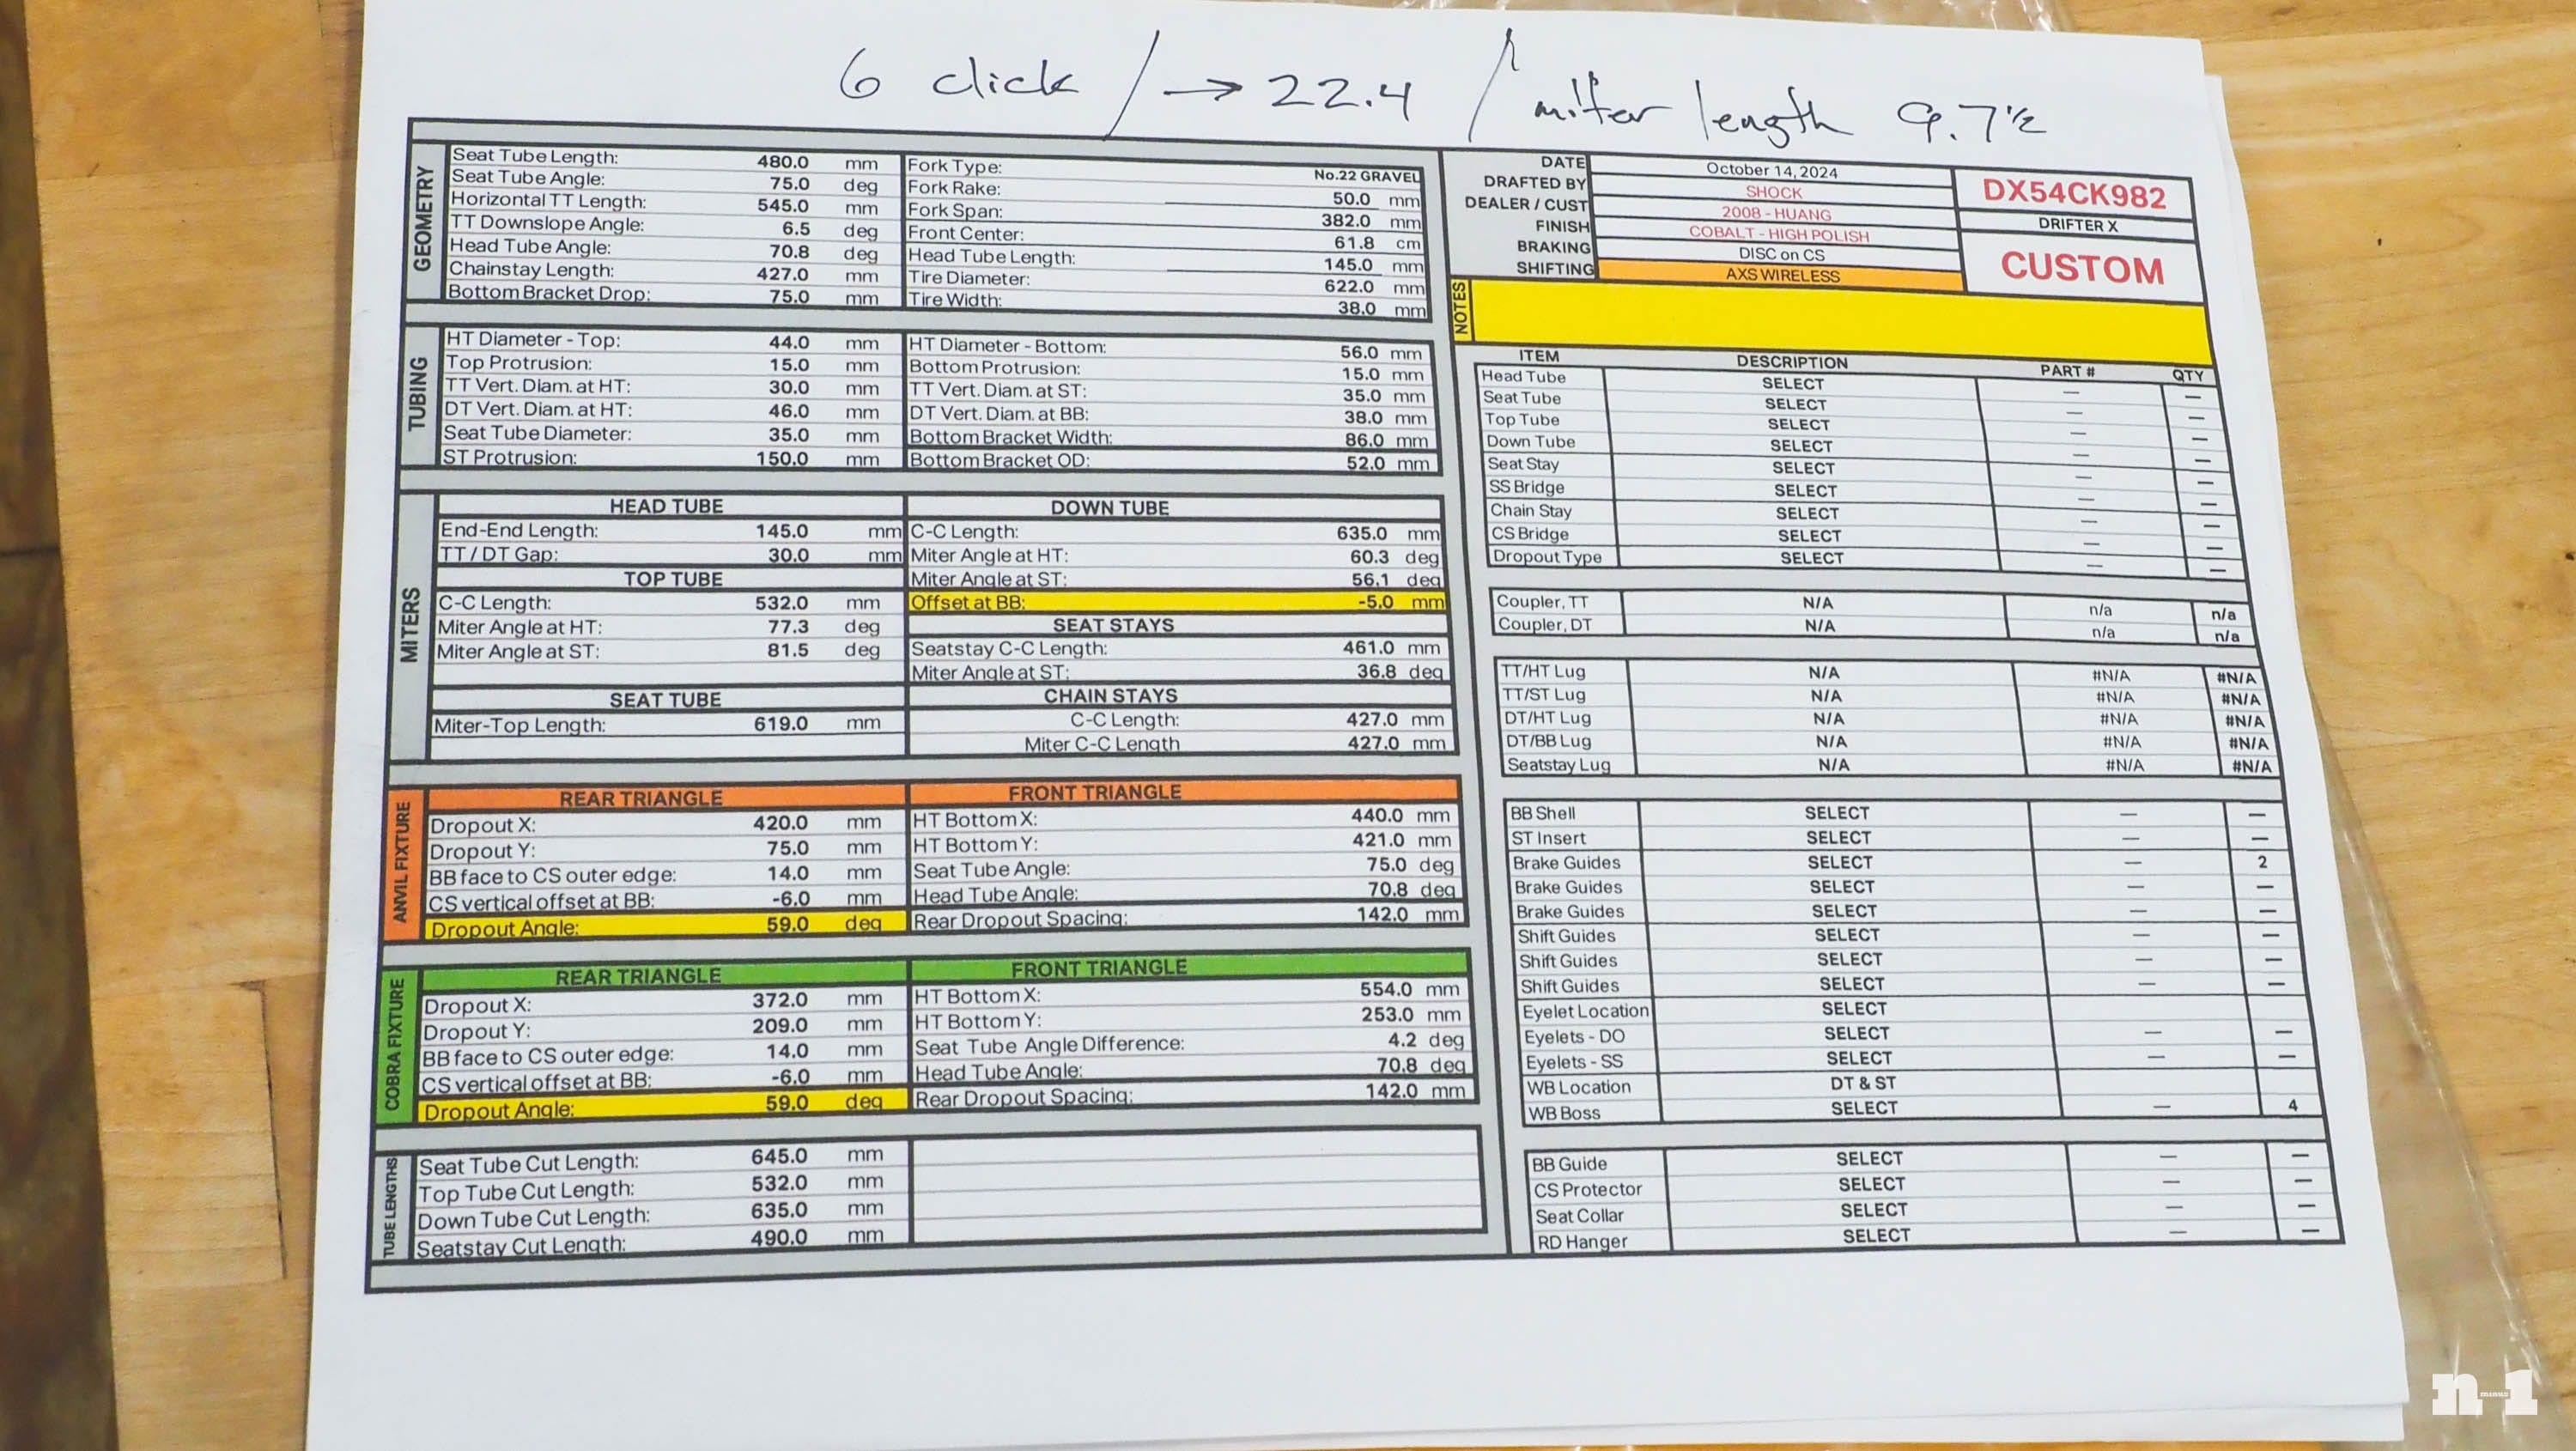 6 click / → 22.4 / miter length 9.7 ½
GEOMETRY
Seat Tube Length: 480.0 mm
Seat Tube Angle: 75.0 deg
Horizontal TT Length: 545.0 mm
TT Downslope Angle: 6.5 deg
Head Tube Angle: 70.8 deg
Chainstay Length: 427.0 mm
Bottom Bracket Drop: 75.0 mm
Fork Type: No.22 GRAVEL
Fork Rake: 50.0 mm
Fork Span: 382.0 mm
Front Center: 61.8 cm
Head Tube Length: 145.0 mm
Tire Diameter: 622.0 mm
Tire Width: 38.0 mm
TUBING
HT Diameter - Top: 44.0 mm
Top Protrusion: 15.0 mm
TT Vert. Diam. at HT: 30.0 mm
DT Vert. Diam. at HT: 46.0 mm
Seat Tube Diameter: 35.0 mm
ST Protrusion: 150.0 mm
HT Diameter - Bottom: 56.0 mm
Bottom Protrusion: 15.0 mm
TT Vert. Diam. at ST: 35.0 mm
DT Vert. Diam. at BB: 38.0 mm
Bottom Bracket Width: 86.0 mm
Bottom Bracket OD: 52.0 mm
MITERS
HEAD TUBE
End-End Length: 145.0 mm
TT / DT Gap: 30.0 mm
TOP TUBE
C-C Length: 532.0 mm
Miter Angle at HT: 77.3 deg
Miter Angle at ST: 81.5 deg
SEAT TUBE
Miter-Top Length: 619.0 mm
DOWN TUBE
C-C Length: 635.0 mm
Miter Angle at HT: 60.3 deg
Miter Angle at ST: 56.1 deg
Offset at BB: -5.0 mm
SEAT STAYS
Seatstay C-C Length: 461.0 mm
Miter Angle at ST: 36.8 deg
CHAIN STAYS
C-C Length: 427.0 mm
Miter C-C Length 427.0 mm
ANVIL FIXTURE
REAR TRIANGLE
Dropout X: 420.0 mm
Dropout Y: 75.0 mm
BB face to CS outer edge: 14.0 mm
CS vertical offset at BB: -6.0 mm
Dropout Angle: 59.0 deg
FRONT TRIANGLE
HT Bottom X: 440.0 mm
HT Bottom Y: 421.0 mm
Seat Tube Angle: 75.0 deg
Head Tube Angle: 70.8 deg
Rear Dropout Spacing: 142.0 mm
COBRA FIXTURE
REAR TRIANGLE
Dropout X: 372.0 mm
Dropout Y: 209.0 mm
BB face to CS outer edge: 14.0 mm
CS vertical offset at BB: -6.0 mm
Dropout Angle: 59.0 deg
FRONT TRIANGLE
HT Bottom X: 554.0 mm
HT Bottom Y: 253.0 mm
Seat Tube Angle Difference: 4.2 deg
Head Tube Angle: 70.8 deg
Rear Dropout Spacing: 142.0 mm
TUBE LENGTHS
Seat Tube Cut Length: 645.0 mm
Top Tube Cut Length: 532.0 mm
Down Tube Cut Length: 635.0 mm
Seatstay Cut Length: 490.0 mm
DATE October 14, 2024
DRAFTED BY SHOCK
DEALER / CUST 2008 - HUANG
FINISH COBALT - HIGH POLISH
BRAKING DISC on CS
SHIFTING AXS WIRELESS
DX54CK982
DRIFTER X
CUSTOM
NOTES
ITEM DESCRIPTION PART # QTY
Head Tube SELECT — —
Seat Tube SELECT — —
Top Tube SELECT — —
Down Tube SELECT — —
Seat Stay SELECT — —
SS Bridge SELECT — —
Chain Stay SELECT — —
CS Bridge SELECT — —
Dropout Type SELECT — —
Coupler, TT N/A n/a n/a
Coupler, DT N/A n/a n/a
TT/HT Lug N/A #N/A #N/A
TT/ST Lug N/A #N/A #N/A
DT/HT Lug N/A #N/A #N/A
DT/BB Lug N/A #N/A #N/A
Seatstay Lug N/A #N/A #N/A
BB Shell SELECT — —
ST Insert SELECT — —
Brake Guides SELECT — 2
Brake Guides SELECT — —
Brake Guides SELECT — —
Shift Guides SELECT — —
Shift Guides SELECT — —
Shift Guides SELECT — —
Eyelet Location SELECT
Eyelets - DO SELECT — —
Eyelets - SS SELECT — —
WB Location DT & ST
WB Boss SELECT — 4
BB Guide SELECT — —
CS Protector SELECT — —
Seat Collar SELECT — —
RD Hanger SELECT — —
n minus 1